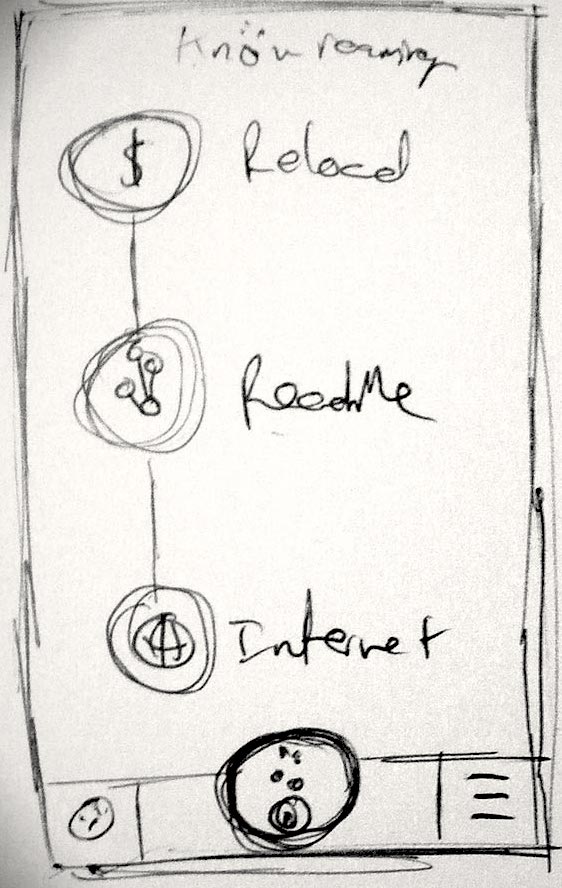 Knöw roaming
$ Reload
ReadMe
Internet